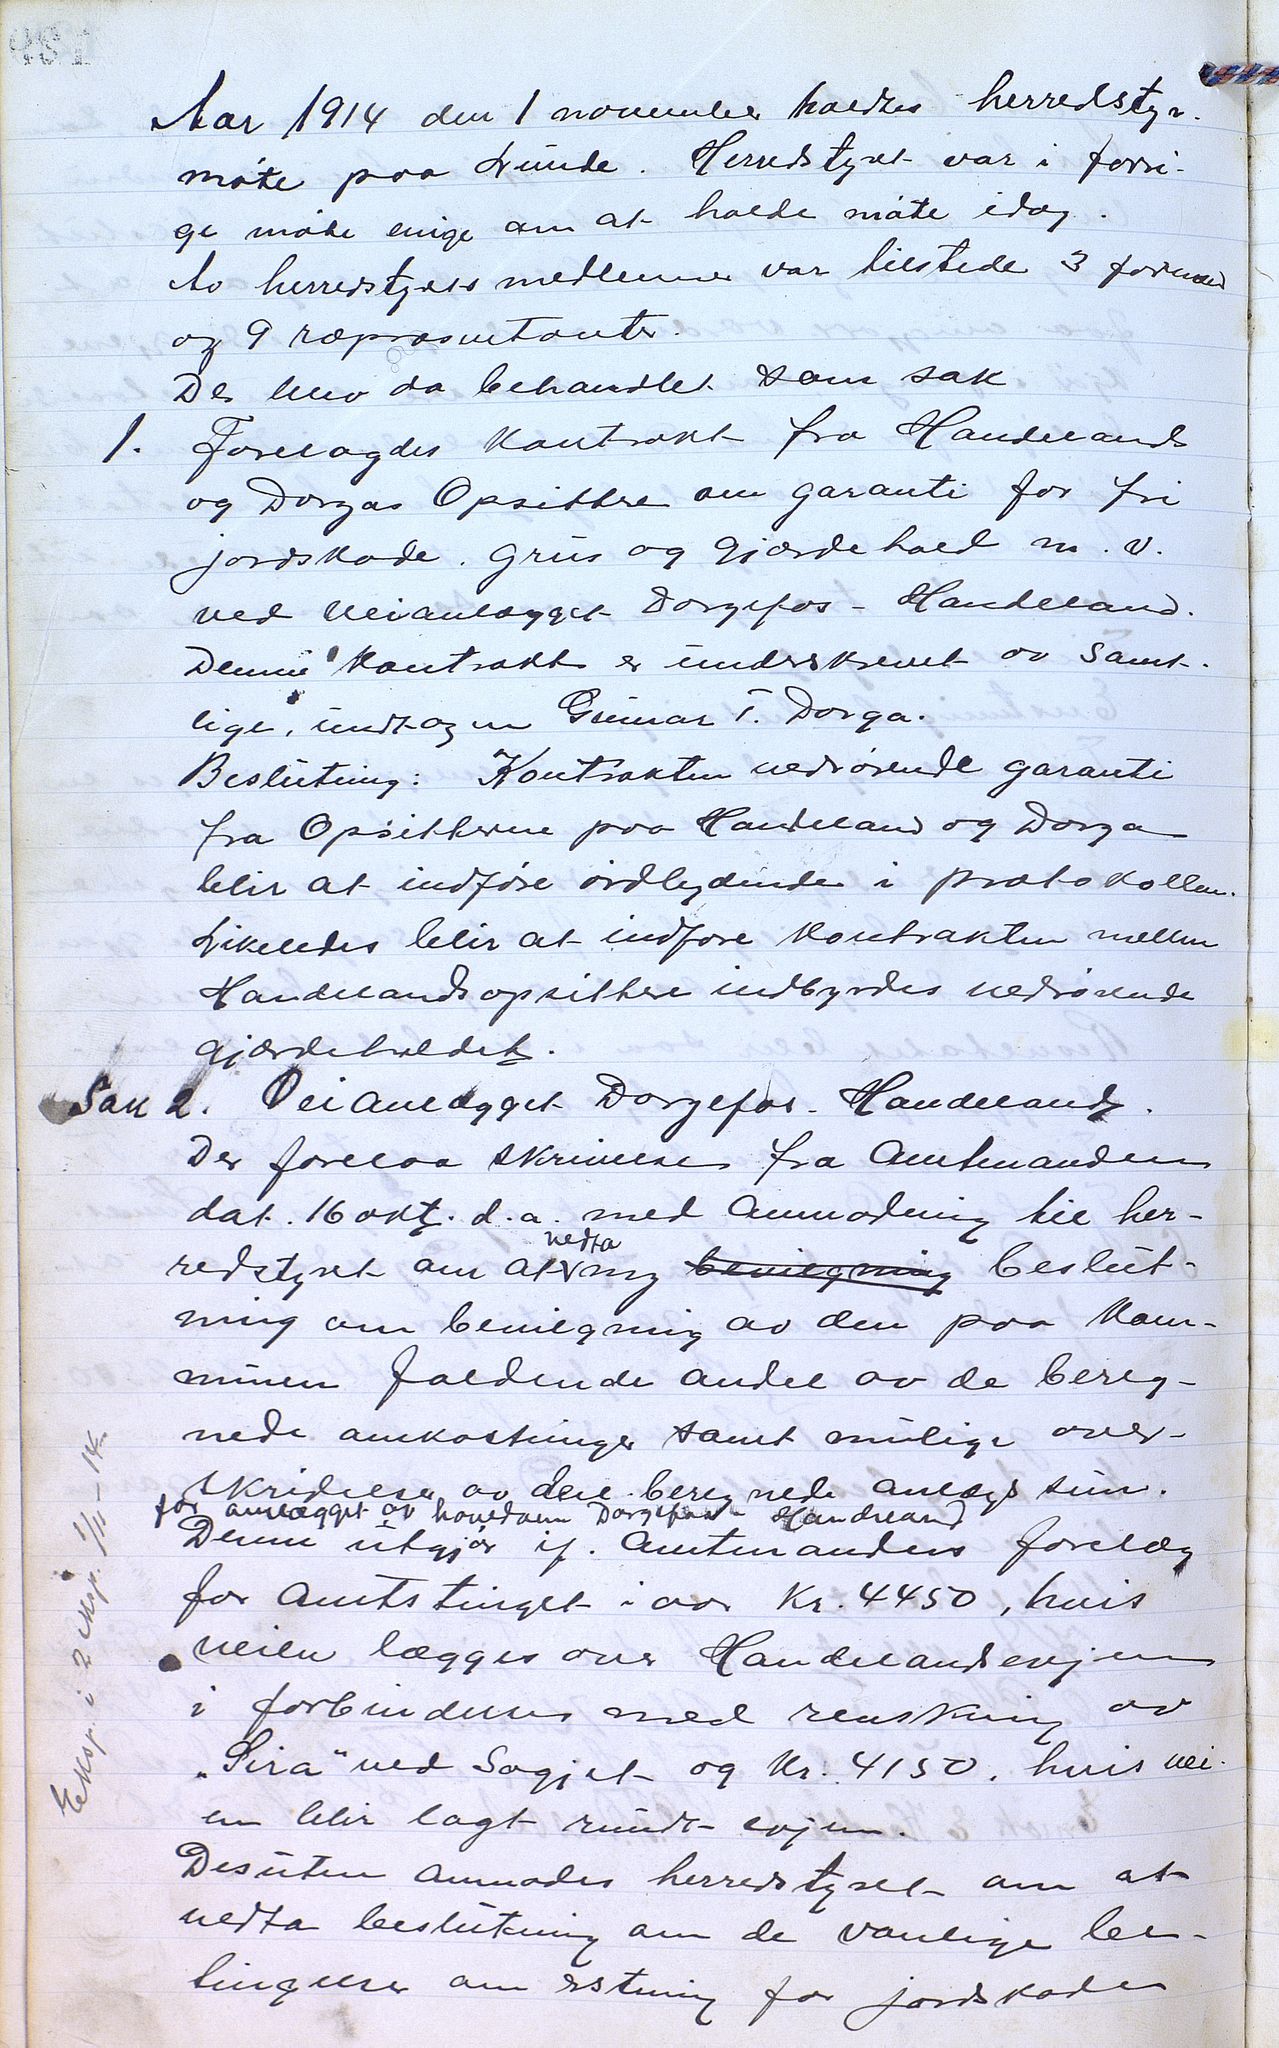 Aar 1914 den 1 november holdtes herredsty-
møte paa Lunde. Herredstyret var i forri-
ge møte enige om at holde møte idag.
Av herredstyrets medlemmer var tilstede 3 formænd
og 9 repræsentanter.
Der blev da behandlet som sak
1. Forelagdes kontrakt fra Handelands
og Dorgas Opsittere om garanti for fri
jordskade, grus og gjærdehold m. v.
ved veianlægget Dorgefos - Handeland.
Denne kontrakt er underskrevet av samt-
lige, undtagen Gunnar T. Dorga.
Beslutning: Kontrakten vedrørende garanti
fra Opsitterne paa Handeland og Dorga
blir at indføre ordlydende i protokollen.
Likeledes blir at indføre kontrakten mellem
Handelandsopsittere indbyrdes vedrørende
gjærdeholdet.
Sak 2. Veianlægget Dorgefos - Handeland.
Der forelaa skrivelse fra Amtmanden
dat. 16 okt. d.a. med anmodning til her-
redstyret om at vedta ny bevilgning beslut-
ning om bevilgning av den paa kom-
munen faldende andel av de bereg-
nede omkostninger samt mulige over-
skridelser av den beregnede anlægssum
for anlægget av hovedveien Dorgefoss - Handeland
Denne utgjør if. Amtmandens forelæg
for Amtstinget i aar Kr. 4450, hvis
veien lægges over Handelandsevjen
i forbindelse med renskning av
"Sira" ved Sagjet og Kr. 4150, hvis vei-
en blir lagt rundt evjen.
Desuten anmodes herredstyret om at
vedta beslutning om de vanlige be-
tingelser om erstning for jordskade
Eksp. i 2 eksp. 1/11 - 14